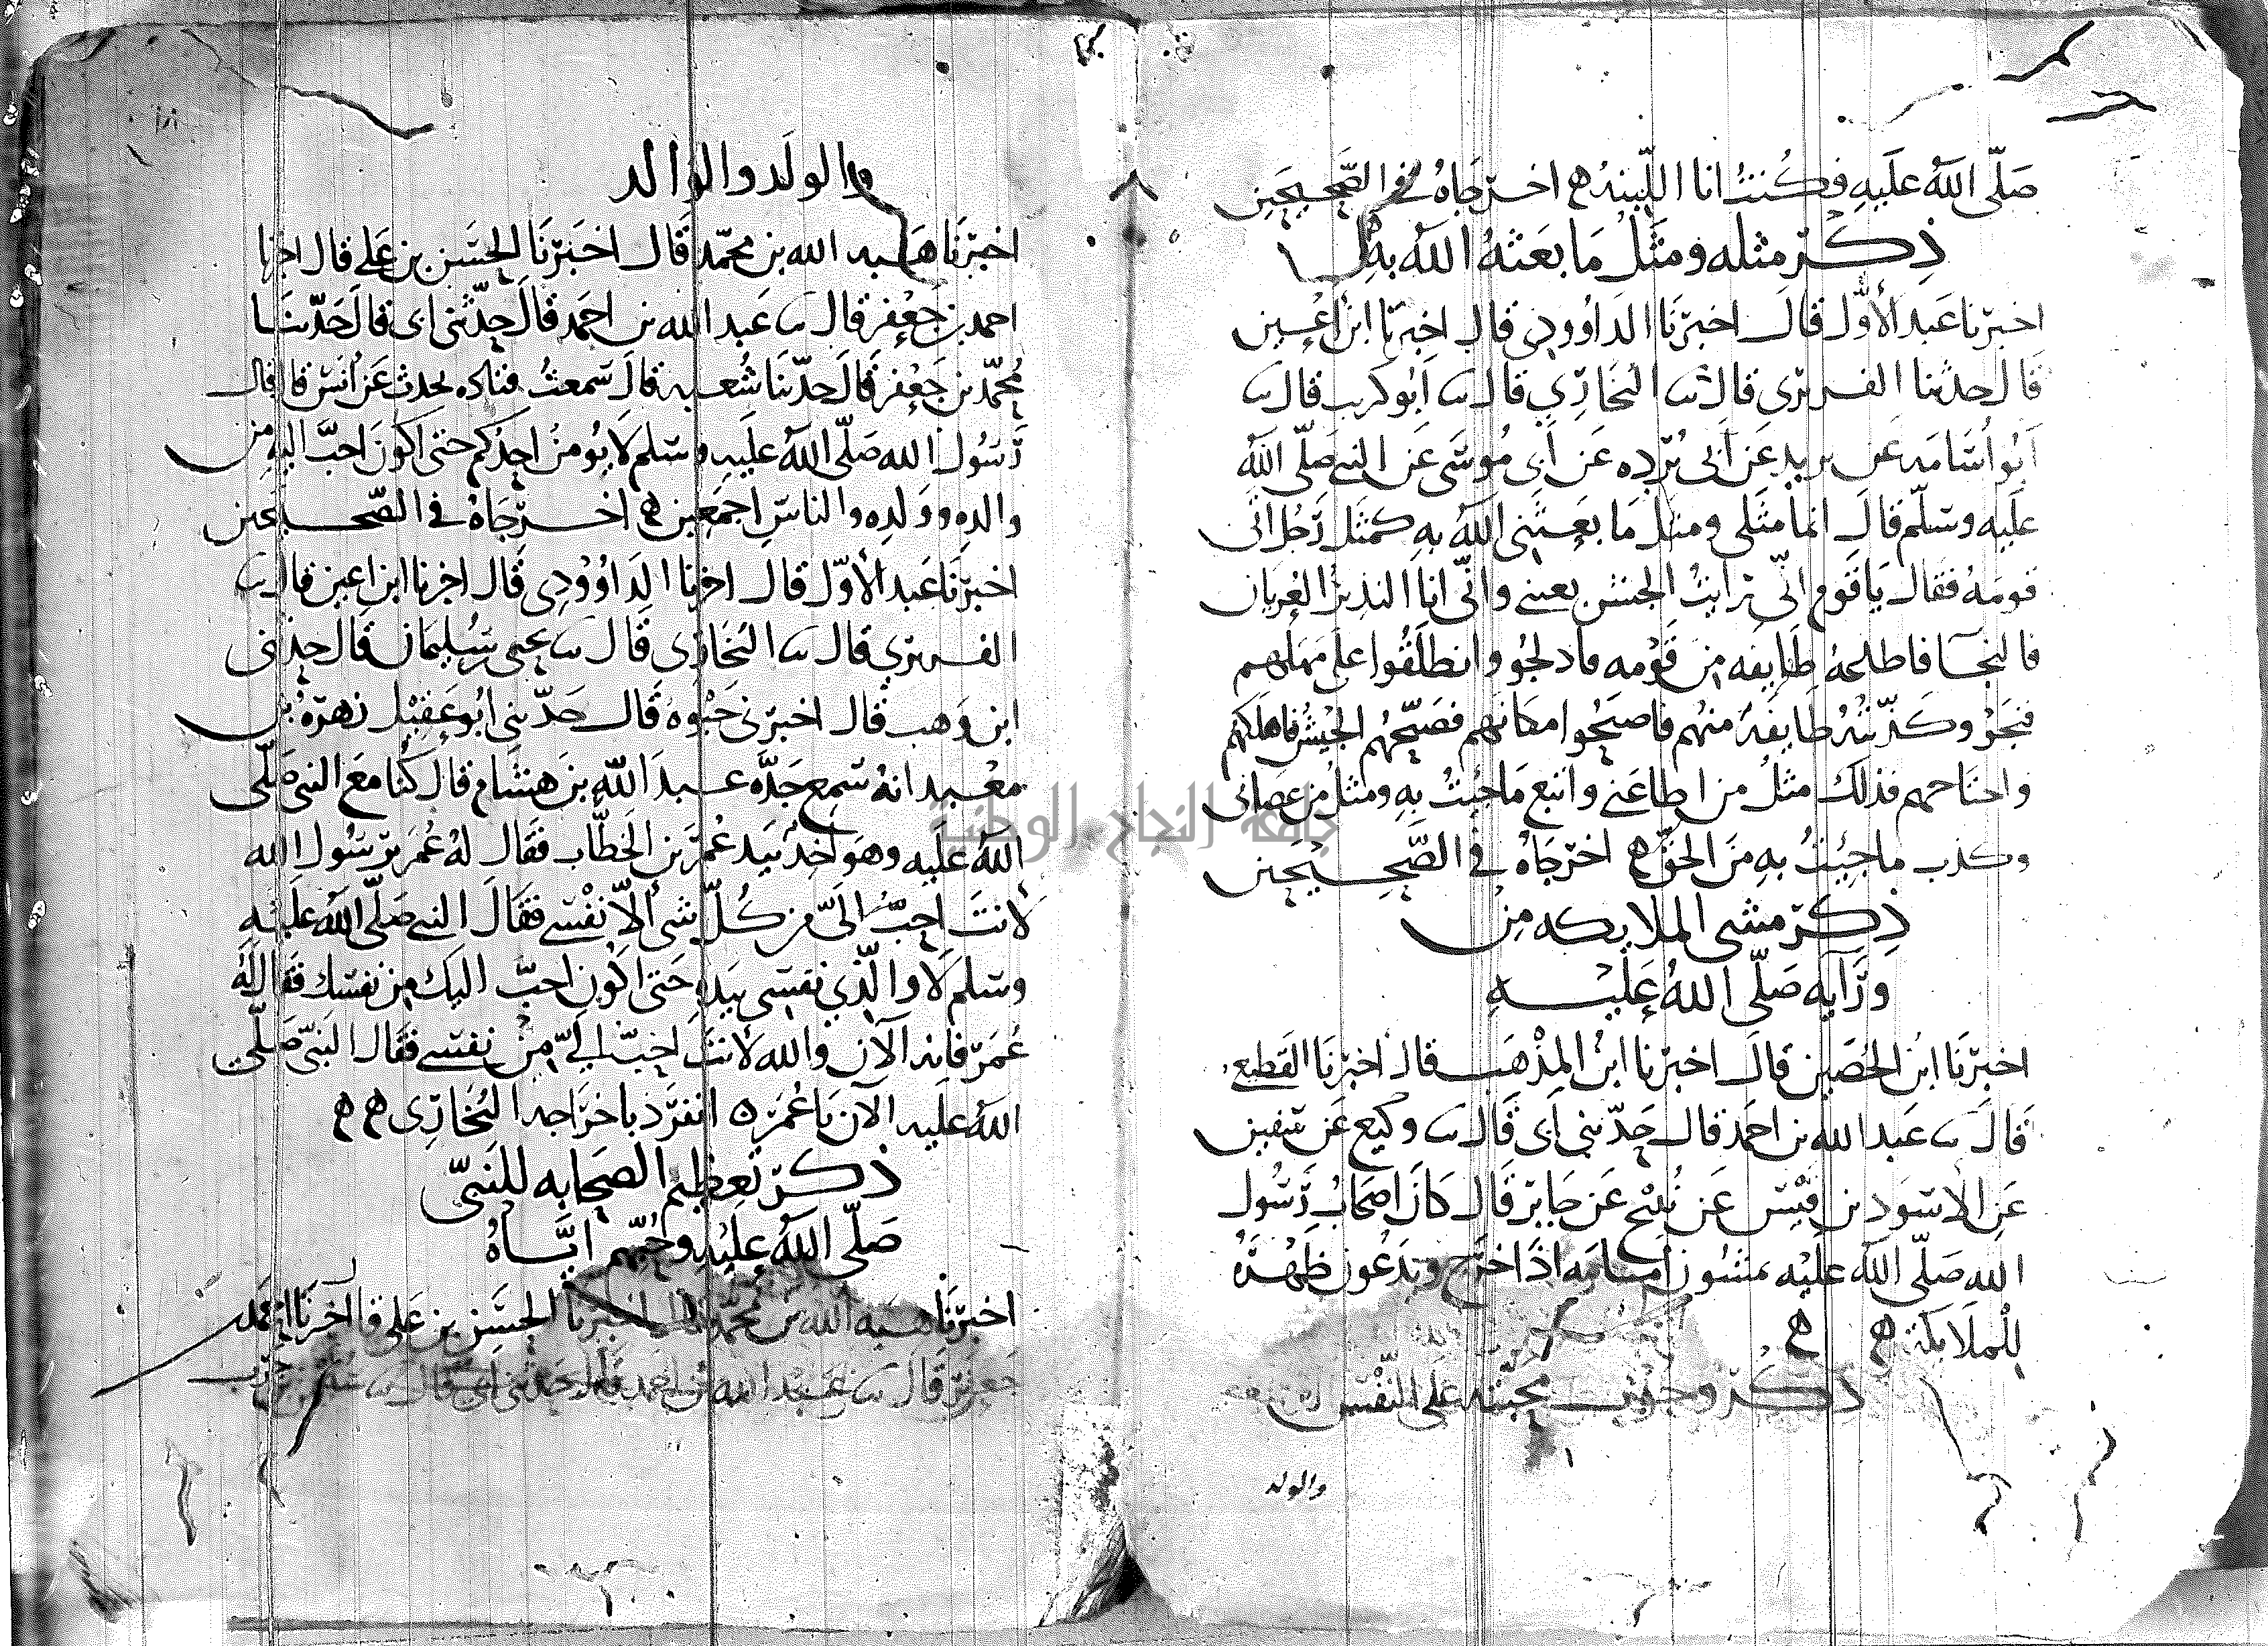 صَلّى اللهُ عَلَيهِ فكُنتُ انا اللّبِنهُ ه اخرجَاهُ في الصَّحيحَين
ذِكر مثله ومثَل مَا بعَثهُ اللهُ بهِ
اخبرنا عَبد الأوَّل قالَ اخبرَنَا الدَاوُودِي قال اخبرنا ابن اعين
قال حدثنا الفربري قال ثنا البُخاري قال ثنا ابُو كريب قال ثنا
ابُو اسَامه عَن بريدٍ عَن ابى بُرده عَن ابى مُوسَى عَن النبي صَلّى اللهُ
عَليه وسَلّم قالَ انما مثَلى ومثل مَا بعَثَنى اللهُ بهِ كمثَل رَجُل اتى
قومَهُ فقال يَا قَوم انّى رايتُ الجيش بعينى وانّى انا النذيرُ العُريان
فالنجا فاطاعهُ طَايفه مِن قَوْمه فادلجُو وانطلَقُوا على مَهلهم
فنجَوْ وكذّبتهُ طَايفَهُ منهُم فاصبَحُوا مكانَهم فصَبّحَهُم الجَيشُ فاهلكهُم
واجتاحهم فذلك مثلُ من اطاعَنى واتبع مَا جئتُ بهِ ومثلُ مَن عَصَانى
وكذب ما جِئتُ بهِ مِنَ الحَقِّ ه اخرجَاهُ في الصَّحِيحَين
ذِكر مشى الملايكه مِن
وَرَآيه صَلّى اللهُ عَلَيهِ
اخبرَنا ابن الحُصَين قالَ اخبرنا ابنُ المذْهَب قال اخبرَنَا القَطيعي
قال ثنا عَبد الله بن احمَد قال حَدّثنى أبى قال ثنا وكيع عَن سفين
عَنِ الاسوَد بن قَيس عَن نُبَيح عَن جَابر قَال كانَ اصحَابُ رَسُول
الله صَلّى الله عليه يمشون امَامَه اذَا خرَج ويَدَعُون ظَهْرَهُ
لِلْملَايكَة ه ه
ذكر وجُوب محَبّته عَلى النّفس
والولد
والولَد والوَالد
اخبرَنَا هبه الله بن محمّد قَال اخبَرنَا الحسَن بن عَلى قال اخبرنا
احمد بن جَعْفر قال ثنا عَبد الله بن احمَد قالَ حدّثنى ابى قال حَدّثنَا
مُحمّد بن جَعْفر قَالَ حدّثنَا شُعبه قالَ سَمعتُ قتاده يحدث عَن أنَس قال قال
رَسُول الله صَلّى اللهُ عَليهِ وسَلم لَا يُومنُ احدُكم حَتى اكونَ احبَّ اليهِ مِن
والدهِ ووَلدِه والناسِ اجمَعِين ه اخرجَاهُ في الصّحيحَين
اخبرَنَا عَبد الأوّل قال اخبرنا الدَاوُودِى قَال اخبرنا ابن اعين قال ثنا
الفربري قال ثنا البُخَارى قَال ثنا يحيى بن سُليمان قال حدّثنى
ابن وَهب قال اخبرنى حَيْوهُ قَال حَدّثنى ابُو عَقيْل زهرَهُ بن
مَعْبد انهُ سَمِع جَدّهُ عبدَ اللهِ بنَ هشَام قال كُنا معَ النبى صَلّى
اللهُ عَليه وهوَ آخِذٌ بيَد عُمَر بن الخَطّاب فقَال لهُ عُمَر يرسُول الله
لأنتَ احبُّ الىَّ من كُلّ شى ألاّ نفْسى فقَالَ النبى صَلّى اللهُ عليهِ
وسَلم لَا والّذِي نفسى بيَده حَتى اكُون احبّ اليك من نفسك فقَال لَهُ
عُمَر فانه الآن والله لأنتَ احبّ اليّ مِن نفسى فقَال النبىّ صَلّى
اللهُ عَليه الآن يَا عُمَر ه انفرَد باخراجه البُخارى ه ه
ذكر تَعظيم الصَحابه للنبىّ
صَلّى اللهُ عليْه وحُبّهم ايّاهُ
اخبرنَا هبه الله بن محمّد قال اخبرَنَا الحسَن بن عَلى قال اخبرنَا احمَد بن
جَعفر قالَ ثنا عَبد الله بن احمَد قال حَدثنى ابى قال ثنا